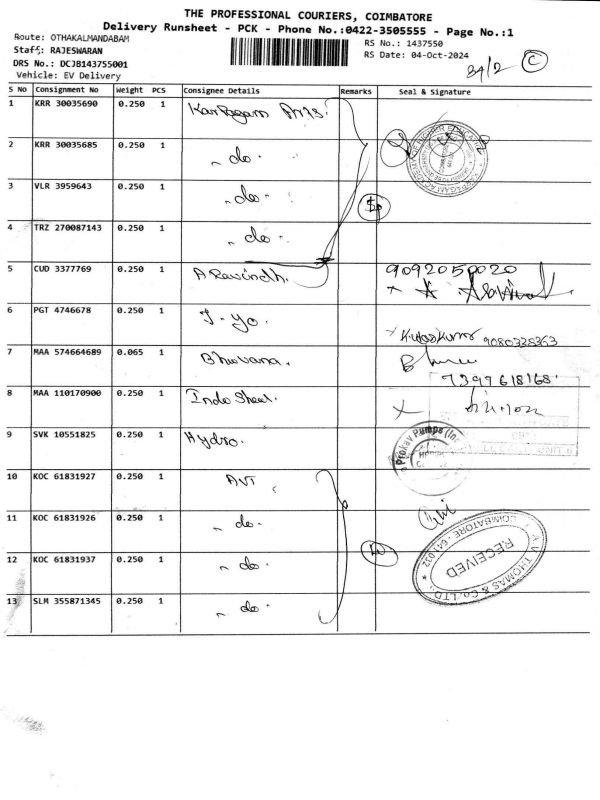 THE PROFESSIONAL COURIERS, COIMBATORE
Delivery Runsheet - PCK - Phone No.:0422-3505555 - Page No.:1
Route: OTHAKALMANDABAM
RS No.: 1437550
Staff: RAJESWARAN
RS Date: 04-Oct-2024
DRS No.: DCJB143755001
Vehicle: EV Delivery
S No Consignment No Weight PCS Consignee Details Remarks Seal & Signature
1 KRR 30035690 0.250 1
2 KRR 30035685 0.250 1 - do -
3 VLR 3959643 0.250 1 - do -
4 TRZ 270087143 0.250 1 - do -
5 CUD 3377769 0.250 1 A Ravindh. 9092050020
6 PGT 4746678 0.250 1 J-yo. 9080328363
7 MAA 574664689 0.065 1 Bhuvana. 7397618168.
8 MAA 110170900 0.250 1 Indo Sheel.
9 SVK 10551825 0.250 1 Hydro. Prokav Pumps (In
10 KOC 61831927 0.250 1 AVT
11 KOC 61831926 0.250 1 - do -
12 KOC 61831937 0.250 1 - do -
13 SLM 355871345 0.250 1 - do -
A.V. THOMAS & Co. LTD.
RECEIVED
COIMBATORE - 641 032